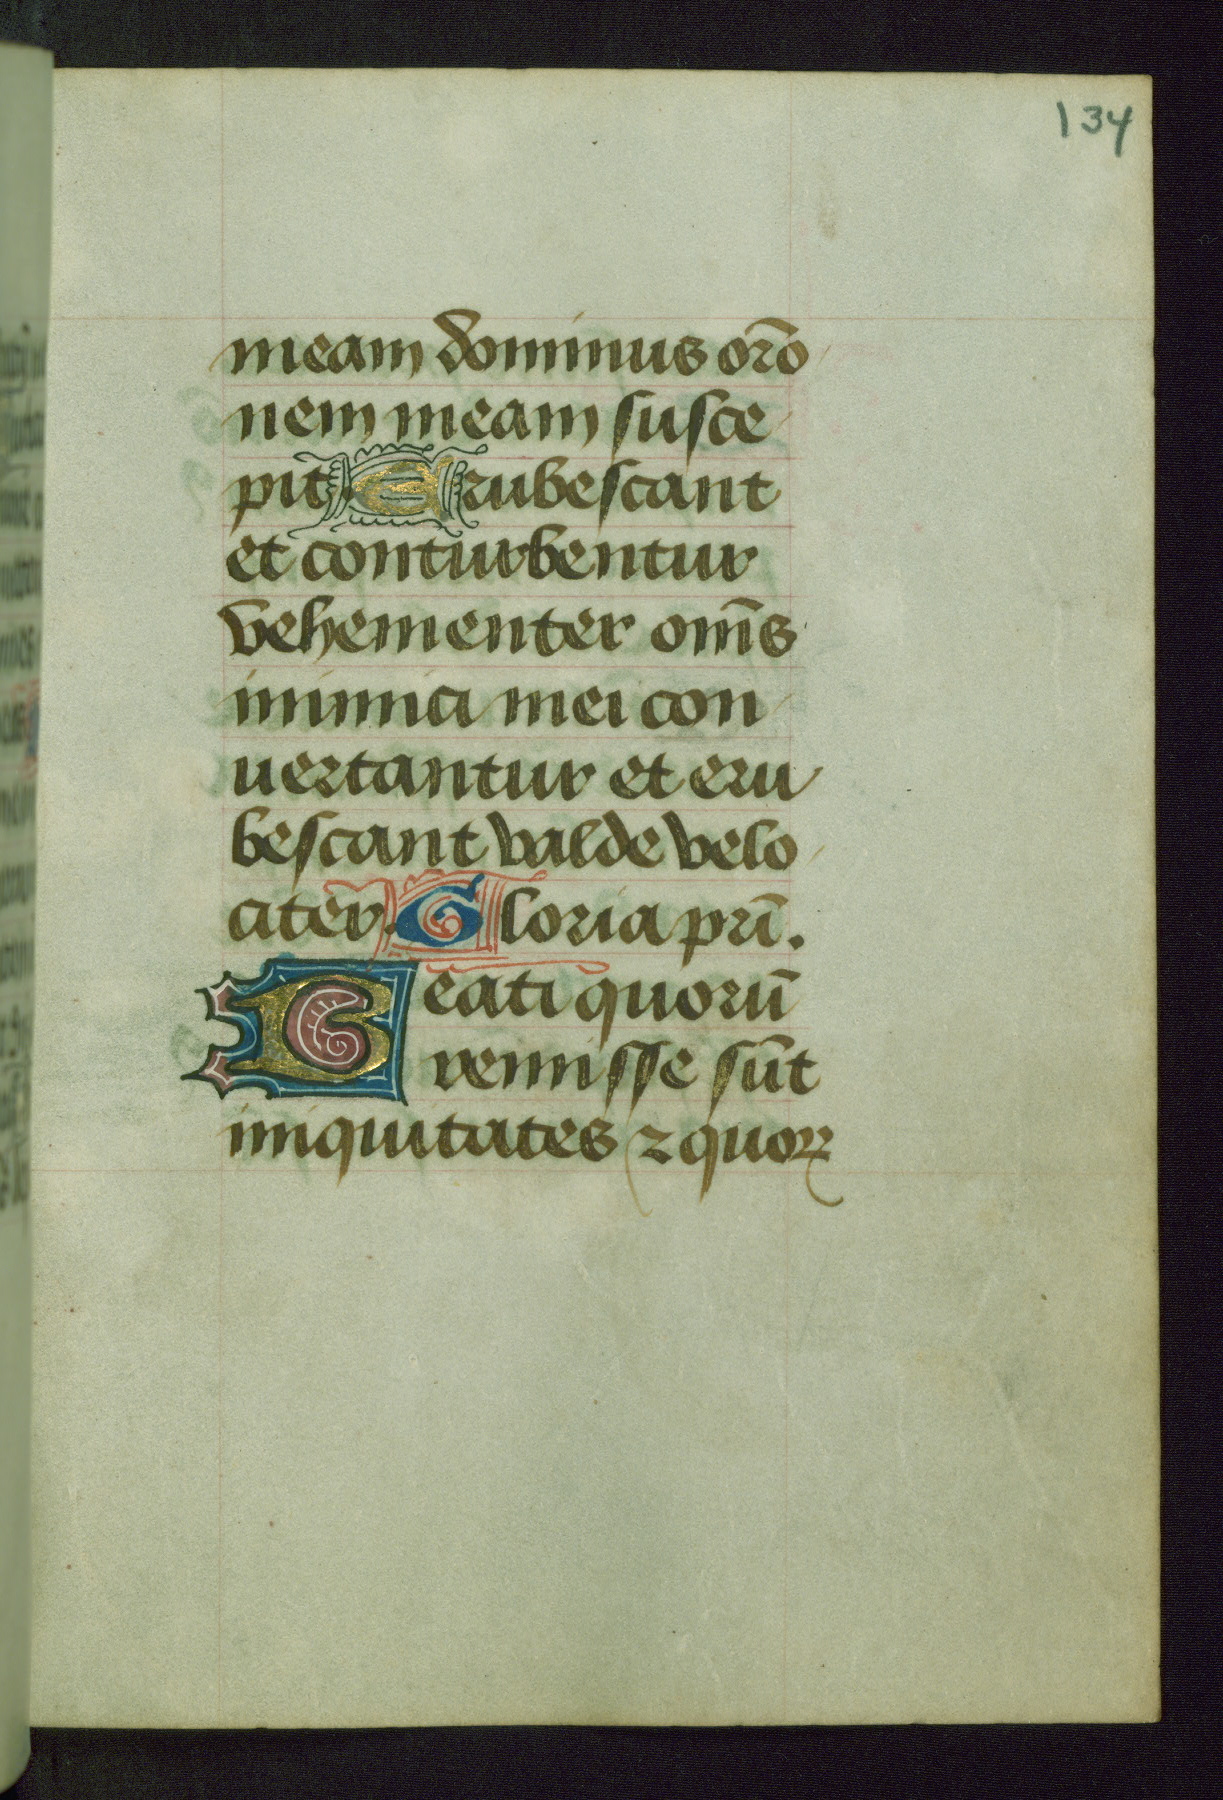 134
meam dominus or̄o
nem meam susce
pit Erubescant
et conturbentur
vehementer om̄s
inimici mei con
uertantur et eru
bescant valde velo
citer. Gloria pr̄i.
Beati quorū
remisse sūt
iniquitates ⁊ quoꝝ